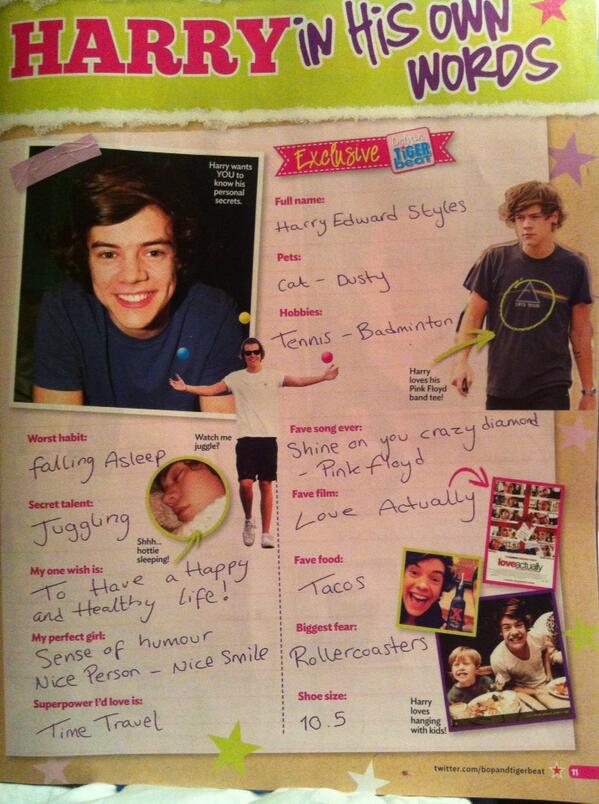 HARRY IN HIS OWN
WORDS
Harry wants
YOU to
know his
personal
secrets.
Exclusive
TIGER
BEAT
Full name:
Harry Edward Styles
Pets:
Cat - Dusty
Hobbies:
Tennis - Badminton
Harry
loves his
Pink Floyd
band tee!
Worst habit:
falling Asleep
Watch me
juggle?
Secret talent:
Juggling
Shhh...
hottie
sleeping!
My one wish is:
To Have a Happy
and Healthy life!
My perfect girl:
Sense of humour
Nice Person - Nice Smile
Superpower I'd love is:
Time Travel
Fave song ever:
Shine on you crazy diamond
- Pink floyd
Fave film:
Love Actually
love actually
Fave food:
Tacos
Biggest fear:
Rollercoasters
Shoe size:
10.5
Harry
loves
hanging
with kids!
twitter.com/bopandtigerbeat
11